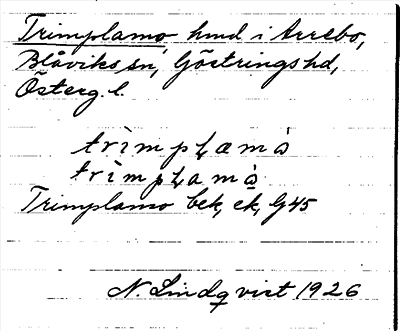 Trimplamo hmd i Arrebo,
Blåviks sn, Göstrings hd,
Österg. l.
trìmpḷæmȧ
trìmpḷamȧ
Trimplamo bek, ek, G45
N. Lindqvist 1926